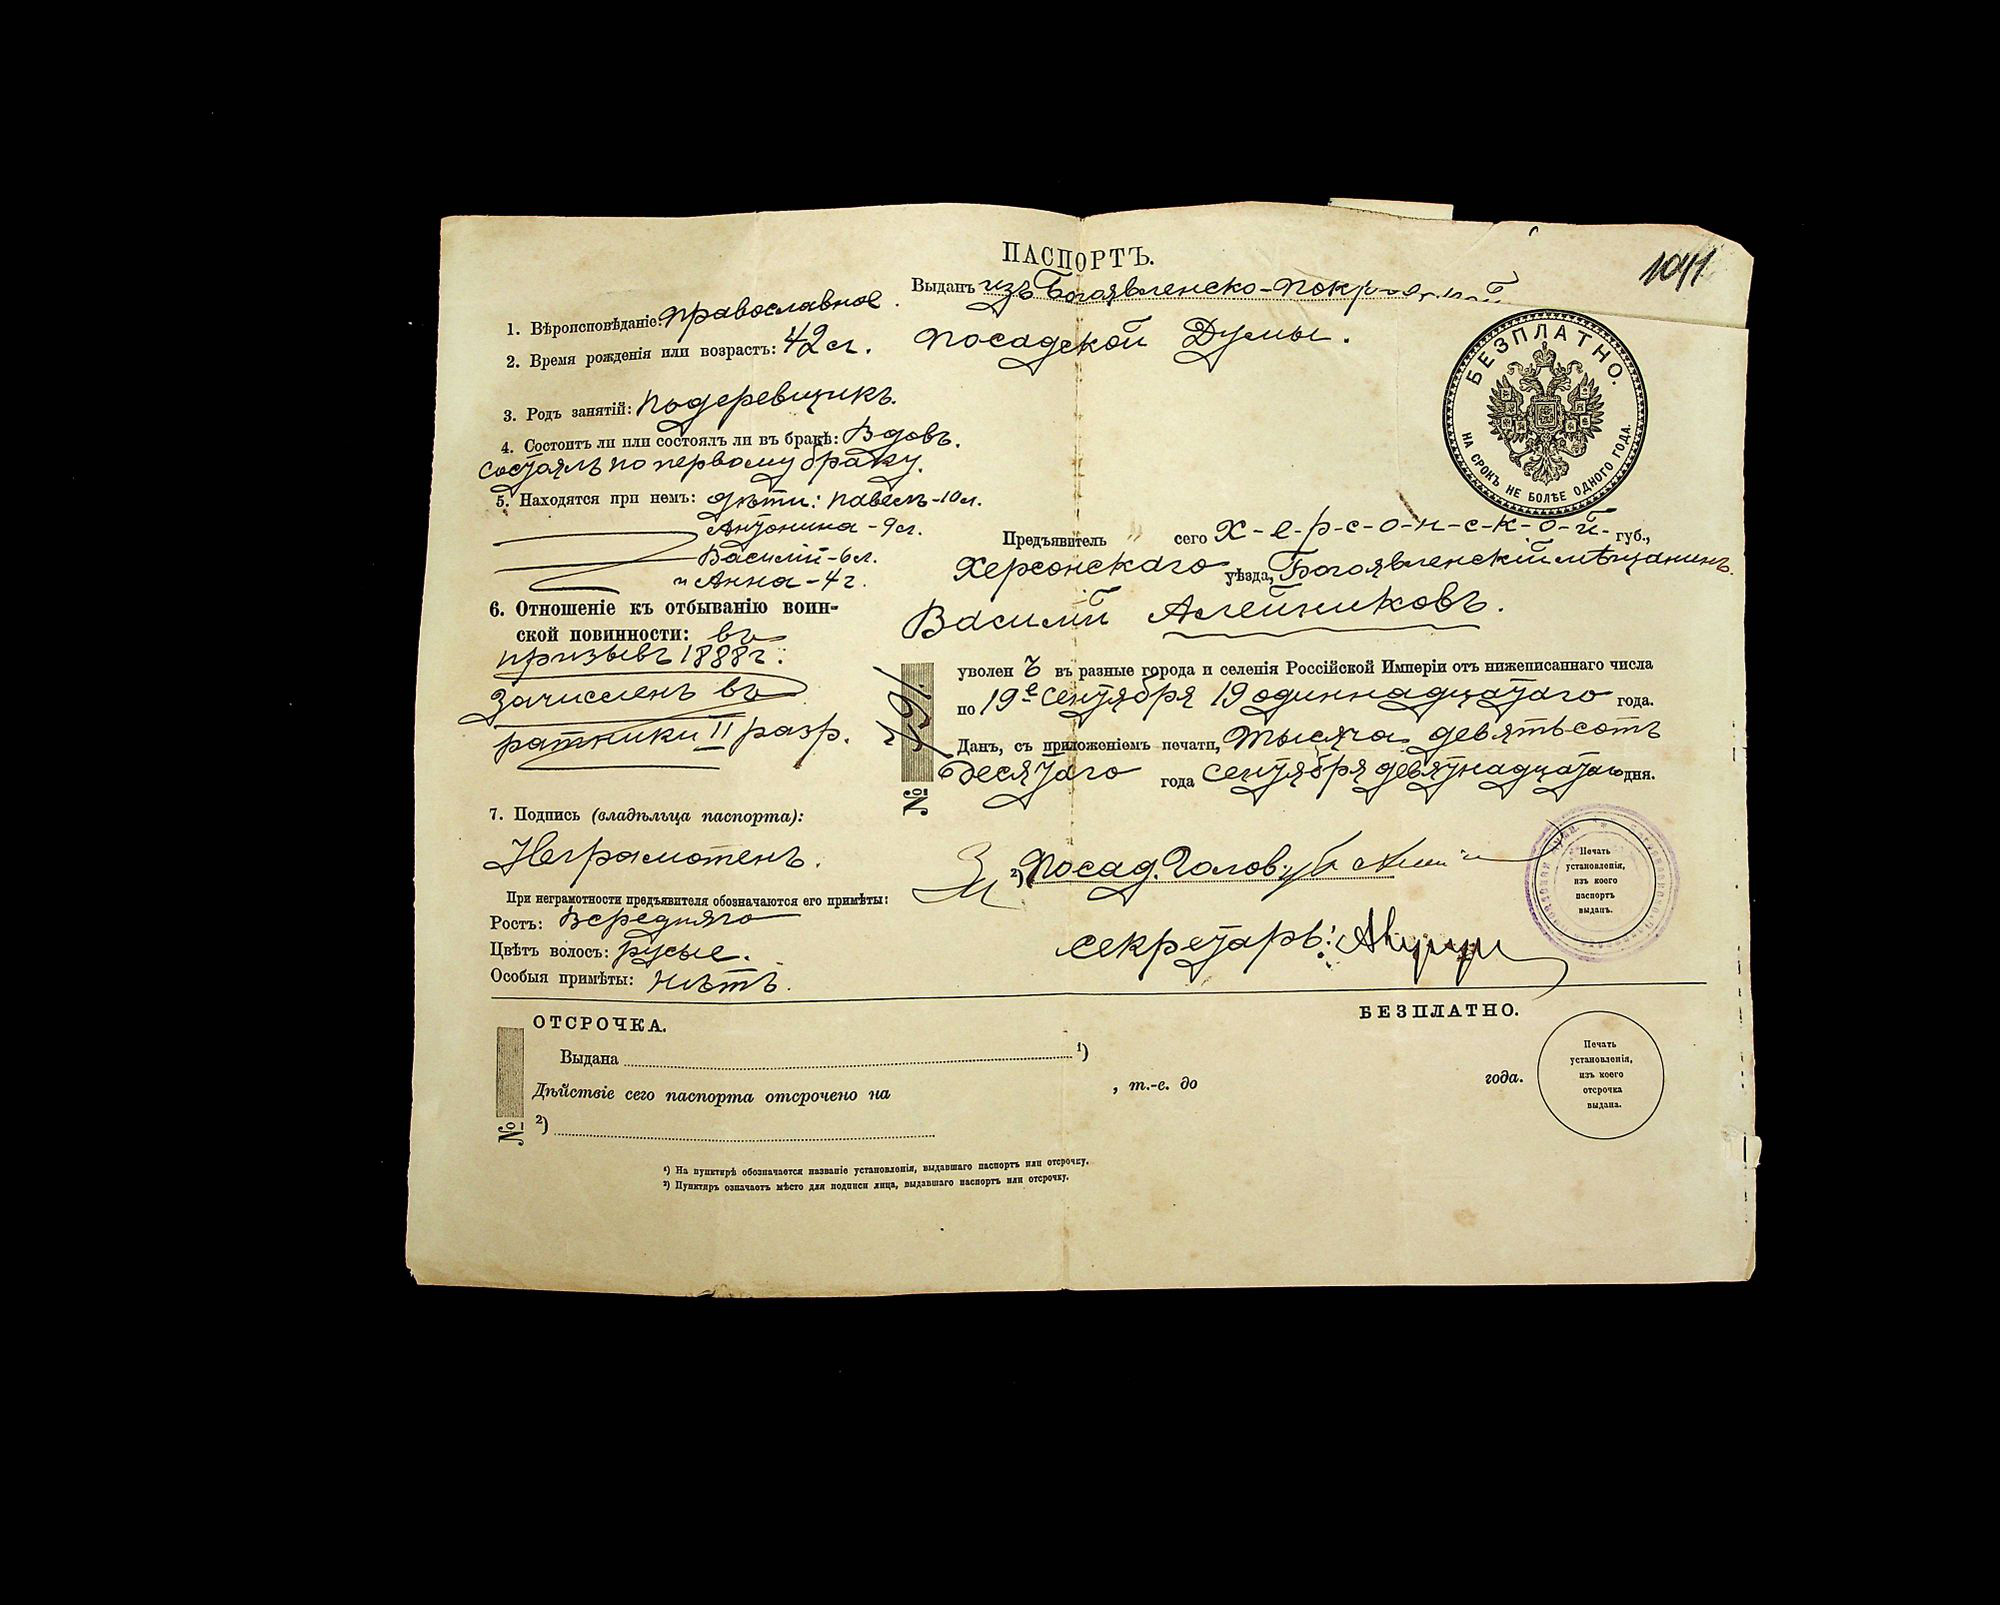 1041
ПАСПОРТЪ.
Выданъ изъ Богоявленско-Покровской
Посадской Думы.
БЕЗПЛАТНО.
НА СРОКЪ НЕ БОЛѢЕ ОДНОГО ГОДА.
1. Вѣроисповѣданіе: православное.
2. Время рожденія или возрастъ: 42 л.
3. Родъ занятій: подеревщикъ.
4. Состоитъ ли или состоялъ ли въ бракѣ: Вдовъ.
состоялъ по первому браку.
5. Находятся при немъ: дѣти: Павелъ-10 л.
Антонина-9 л.
Василій-6 л.
и Анна-4 г.
6. Отношеніе къ отбыванію воин-
ской повинности: въ
призывъ 1888 г.
зачисленъ въ
ратники II разр.
7. Подпись (владѣльца паспорта):
Неграмотенъ.
При неграмотности предъявителя обозначаются его примѣты:
Ростъ: Средняго
Цвѣтъ волосъ: русые.
Особыя примѣты: нѣтъ.
Предъявитель сего Х-е-р-с-о-н-с-к-о-й губ.,
Херсонскаго уѣзда, Богоявленскій мѣщанинъ
Василій Алейниковъ.
уволенъ въ разные города и селенія Россійской Имперіи отъ нижеписаннаго числа
по 19е Сентября 19 одиннадцатаго года.
Данъ, съ приложеніемъ печати, тысяча девятьсотъ
десятаго года сентября девятнадцатаго дня.
№ 491
За 2) Посад. Голов.
секретарь:
Печать
установленія,
изъ коего
паспортъ
выданъ.
ОТСРОЧКА.
БЕЗПЛАТНО.
Выдана 1)
Дѣйствіе сего паспорта отсрочено на , т.-е. до года.
№
2)
Печать
установленія,
изъ коего
отсрочка
выдана.
1) На пунктирѣ обозначается названіе установленія, выдавшаго паспортъ или отсрочку.
2) Пунктиръ означаетъ мѣсто для подписи лица, выдавшаго паспортъ или отсрочку.